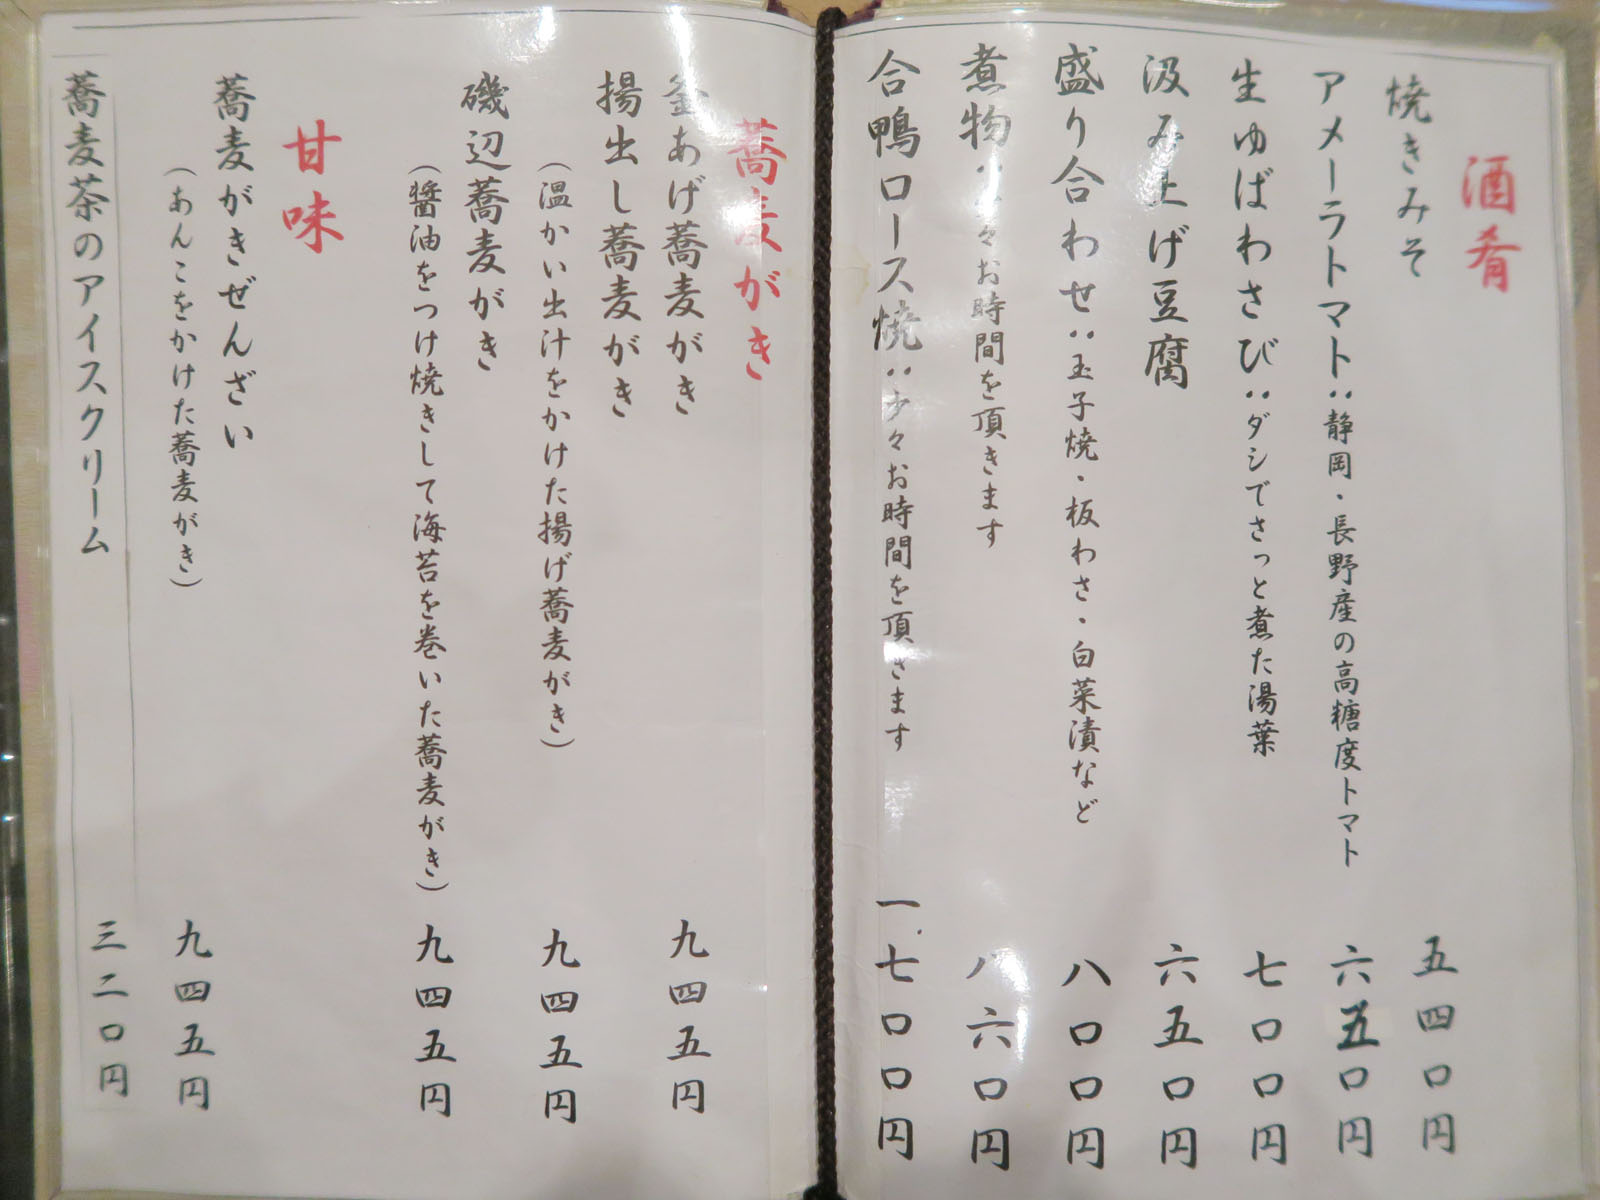 酒肴
焼きみそ 五四〇円
アメーラトマト‥静岡・長野産の高糖度トマト 六五〇円
生ゆばわさび‥ダシでさっと煮た湯葉 七〇〇円
汲み上げ豆腐 六五〇円
盛り合わせ‥玉子焼・板わさ・白菜漬など 八〇〇円
煮物‥少々お時間を頂きます 八六〇円
合鴨ロース焼‥少々お時間を頂きます 一.七〇〇円
蕎麦がき
釜あげ蕎麦がき 九四五円
揚出し蕎麦がき
（温かい出汁をかけた揚げ蕎麦がき） 九四五円
磯辺蕎麦がき
（醤油をつけ焼きして海苔を巻いた蕎麦がき） 九四五円
甘味
蕎麦がきぜんざい
（あんこをかけた蕎麦がき） 九四五円
蕎麦茶のアイスクリーム 三二〇円